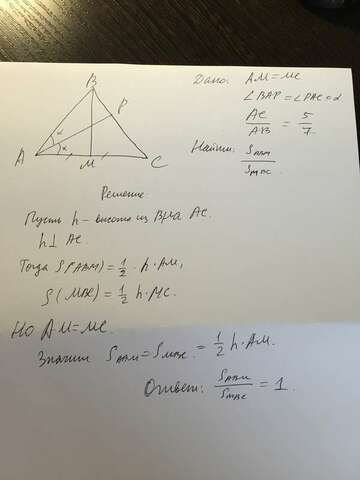 B
P
A
M
C
α
α
Дано: AM = MC
∠BAP = ∠PAC = α
AC/AB = 5/7
Найти: S_ABM/S_MBC
Решение:
Пусть h – высота из B на AC.
h ⊥ AC.
Тогда S(ABM) = 1/2 · h · AM,
S(MBC) = 1/2 h · MC.
Но AM = MC.
Значит S_ABM = S_MBC = 1/2 h · AM.
Ответ: S_ABM/S_MBC = 1.